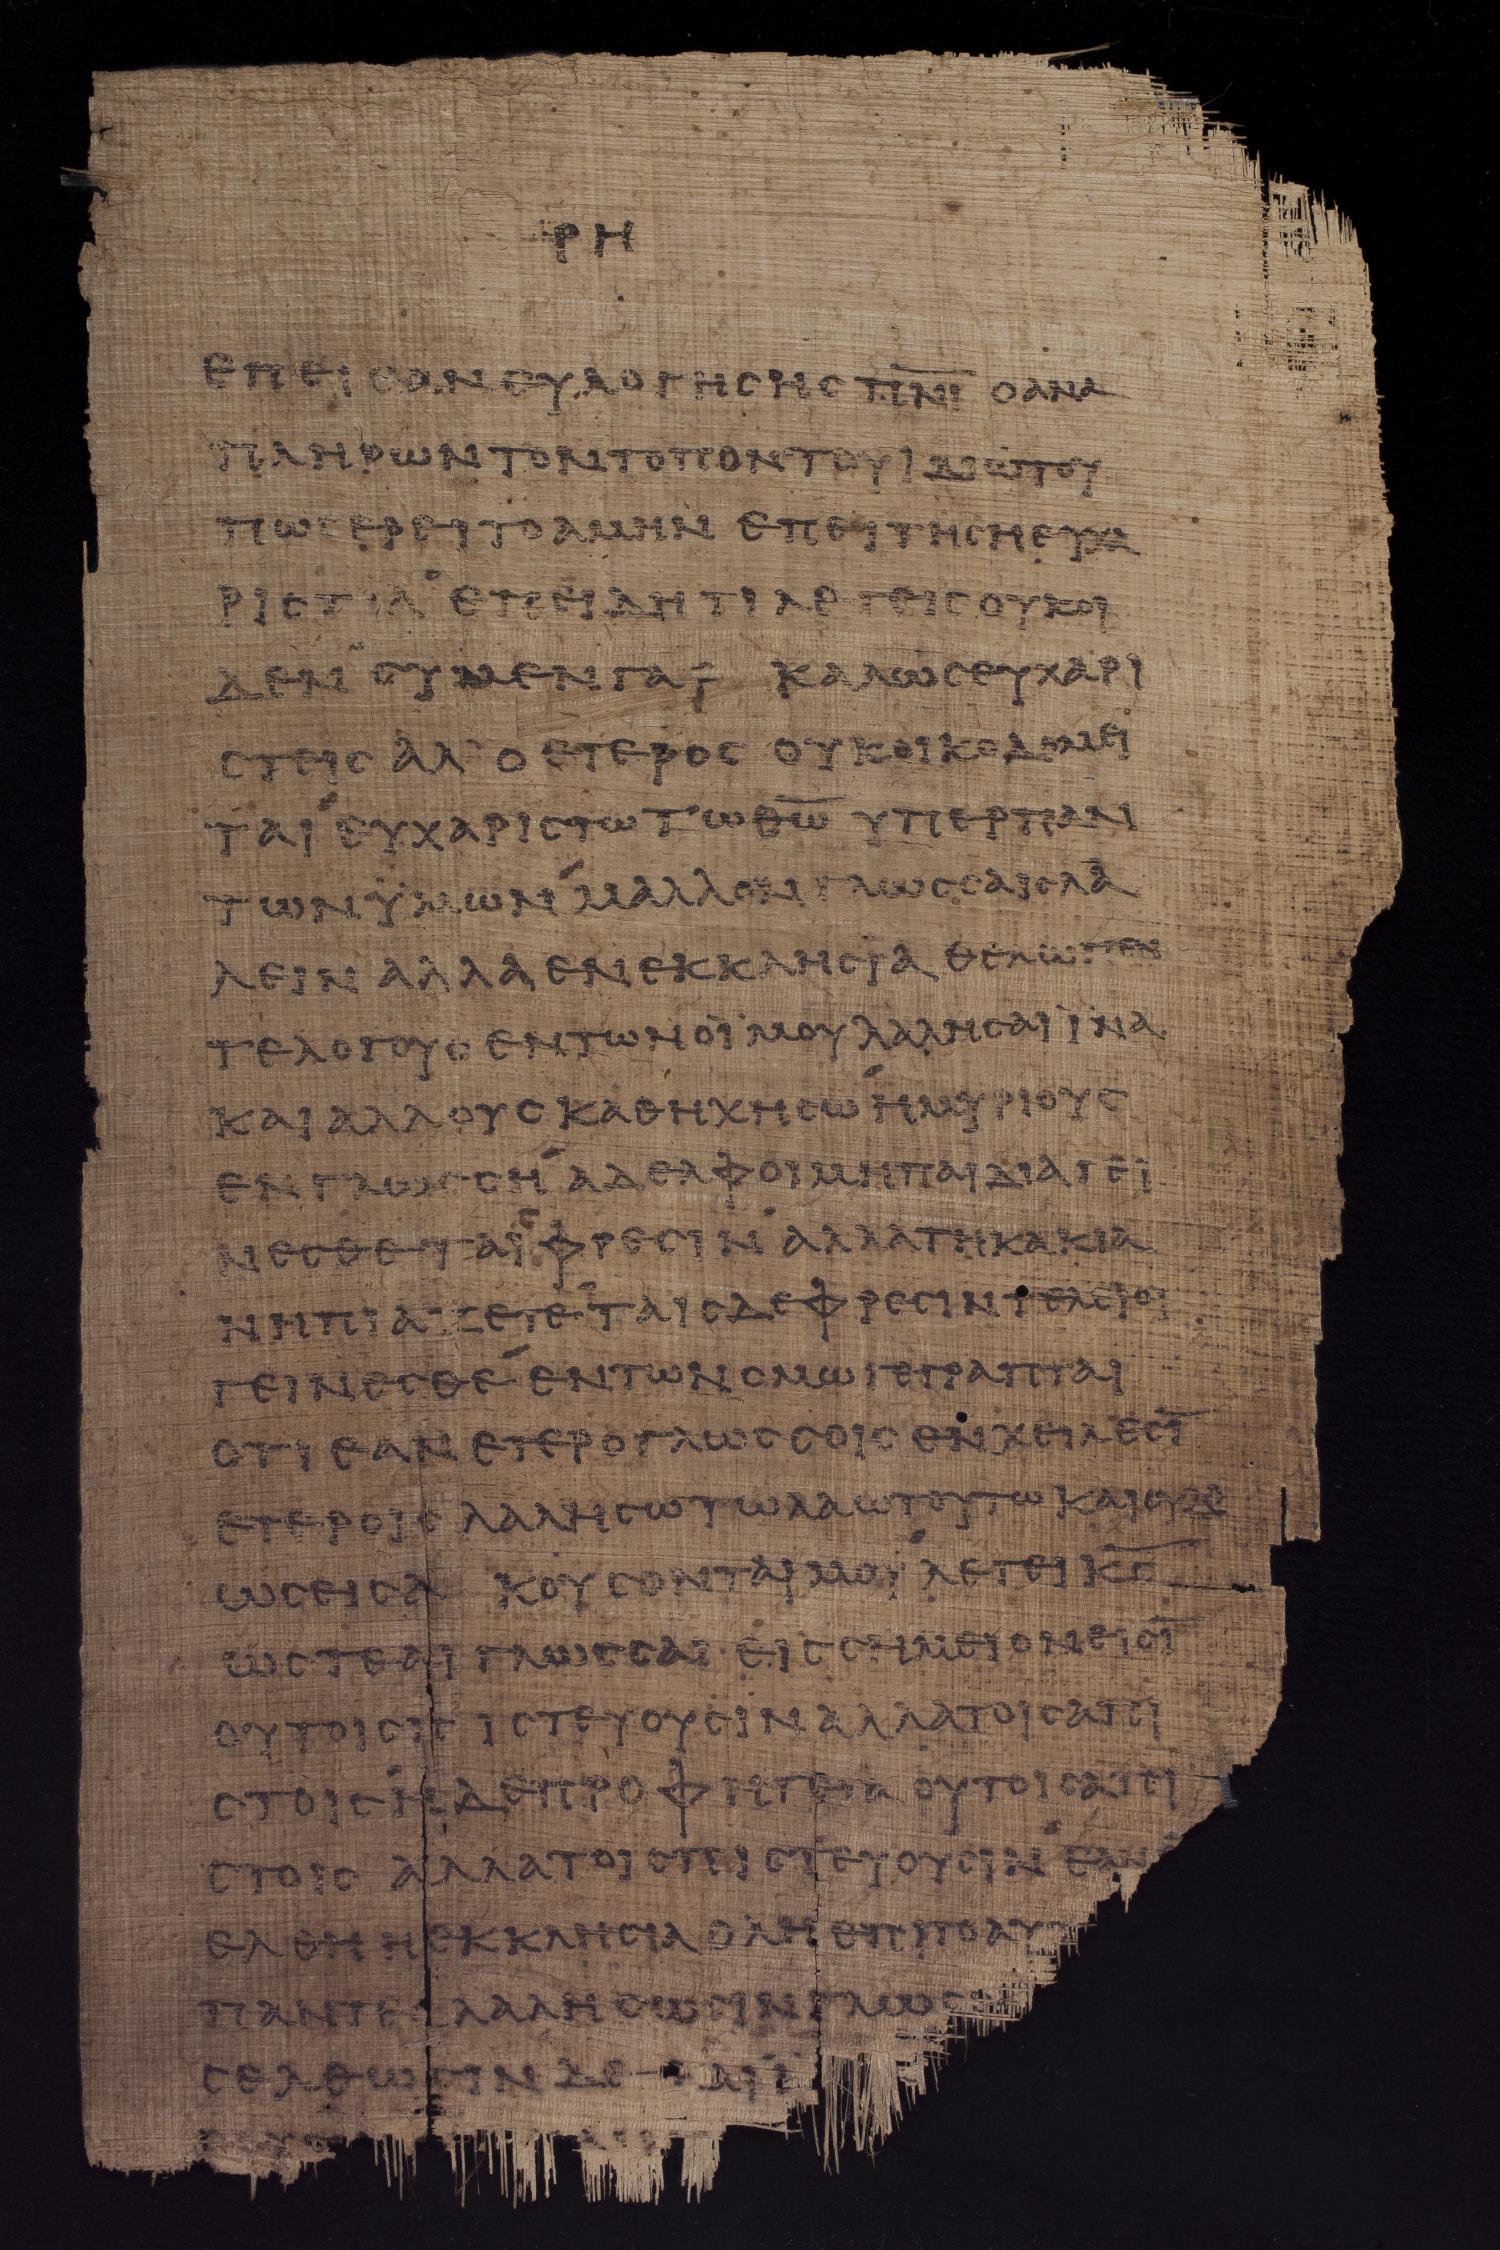 ΡΗ
ΕΠΕΙ ΕΑΝ ΕΥΛΟΓΗΣΗΣ Π̅Ν̅Ι̅ Ο ΑΝΑ
ΠΛΗΡΩΝ ΤΟΝ ΤΟΠΟΝ ΤΟΥ ΙΔΙΩΤΟΥ
ΠΩΣ ΕΡΕΙ ΤΟ ΑΜΗΝ ΕΠΕΙ ΤΗ ΣΗ ΕΥΧΑ
ΡΙΣΤΙΑ ΕΠΕΙΔΗ ΤΙ ΛΕΓΕΙΣ ΟΥΚ ΟΙ
ΔΕΝ ΣΥ ΜΕΝ ΓΑΡ ΚΑΛΩΣ ΕΥΧΑΡΙ
ΣΤΕΙΣ ΑΛΛ Ο ΕΤΕΡΟΣ ΟΥΚ ΟΙΚΟΔΟΜΕΙ
ΤΑΙ ΕΥΧΑΡΙΣΤΩ ΤΩ Θ̅Ω̅ ΥΠΕΡ ΠΑΝ
ΤΩΝ ΫΜΩΝ ΜΑΛΛΟΝ ΓΛΩΣΣΑΙΣ ΛΑ
ΛΕΙΝ ΑΛΛΑ ΕΝ ΕΚΚΛΗΣΙΑ ΘΕΛΩ ΠΕΝ
ΤΕ ΛΟΓΟΥΣ ΕΝ ΤΩ ΝΟΪ ΜΟΥ ΛΑΛΗΣΑΙ ΪΝΑ
ΚΑΙ ΑΛΛΟΥΣ ΚΑΘΗΧΗΣΩ Η ΜΥΡΙΟΥΣ
ΕΝ ΓΛΩΣΣΗ ΑΔΕΛΦΟΙ ΜΗ ΠΑΙΔΙΑ ΓΕΙ
ΝΕΣΘΕ ΤΑΙΣ ΦΡΕΣΙΝ ΑΛΛΑ ΤΗ ΚΑΚΙΑ
ΝΗΠΙΑΖΕΤΕ ΤΑΙΣ ΔΕ ΦΡΕΣΙΝ ΤΕΛΕΙΟΙ
ΓΕΙΝΕΣΘΕ ΕΝ ΤΩ ΝΟΜΩ ΓΕΓΡΑΠΤΑΙ
ΟΤΙ ΕΑΝ ΕΤΕΡΟΓΛΩΣΣΟΙΣ ΕΝ ΧΕΙΛΕΣΙ̅
ΕΤΕΡΟΙΣ ΛΑΛΗΣΩ ΤΩ ΛΑΩ ΤΟΥΤΩ ΚΑΙ ΟΥΔ
ΩΣ ΕΙΣΑΚΟΥΣΟΝΤΑΙ ΜΟΥ ΛΕΓΕΙ Κ̅Σ̅
ΩΣΤΕ ΑΙ ΓΛΩΣΣΑΙ ΕΙΣ ΣΗΜΕΙΟΝ ΕΙΣΙ̅
ΟΥ ΤΟΙΣ ΠΙΣΤΕΥΟΥΣΙΝ ΑΛΛΑ ΤΟΙΣ ΑΠΙ
ΣΤΟΙΣ Η ΔΕ ΠΡΟΦΗΤΕΙΑ ΟΥ ΤΟΙΣ ΑΠΙ
ΣΤΟΙΣ ΑΛΛΑ ΤΟΙΣ ΠΕΙΣΤΕΥΟΥΣΙΝ ΕΑΝ
ΕΛΘΗ Η ΕΚΚΛΗΣΙΑ ΟΛΗ ΕΠΙ ΤΟ ΑΥΤ
ΠΑΝΤΕΣ ΛΑΛΗΣΩΣΙΝ ΓΛΩΣΣ
ΣΕΛΘΩΣΙΝ ΔΕ ΚΑΙ Ϊ